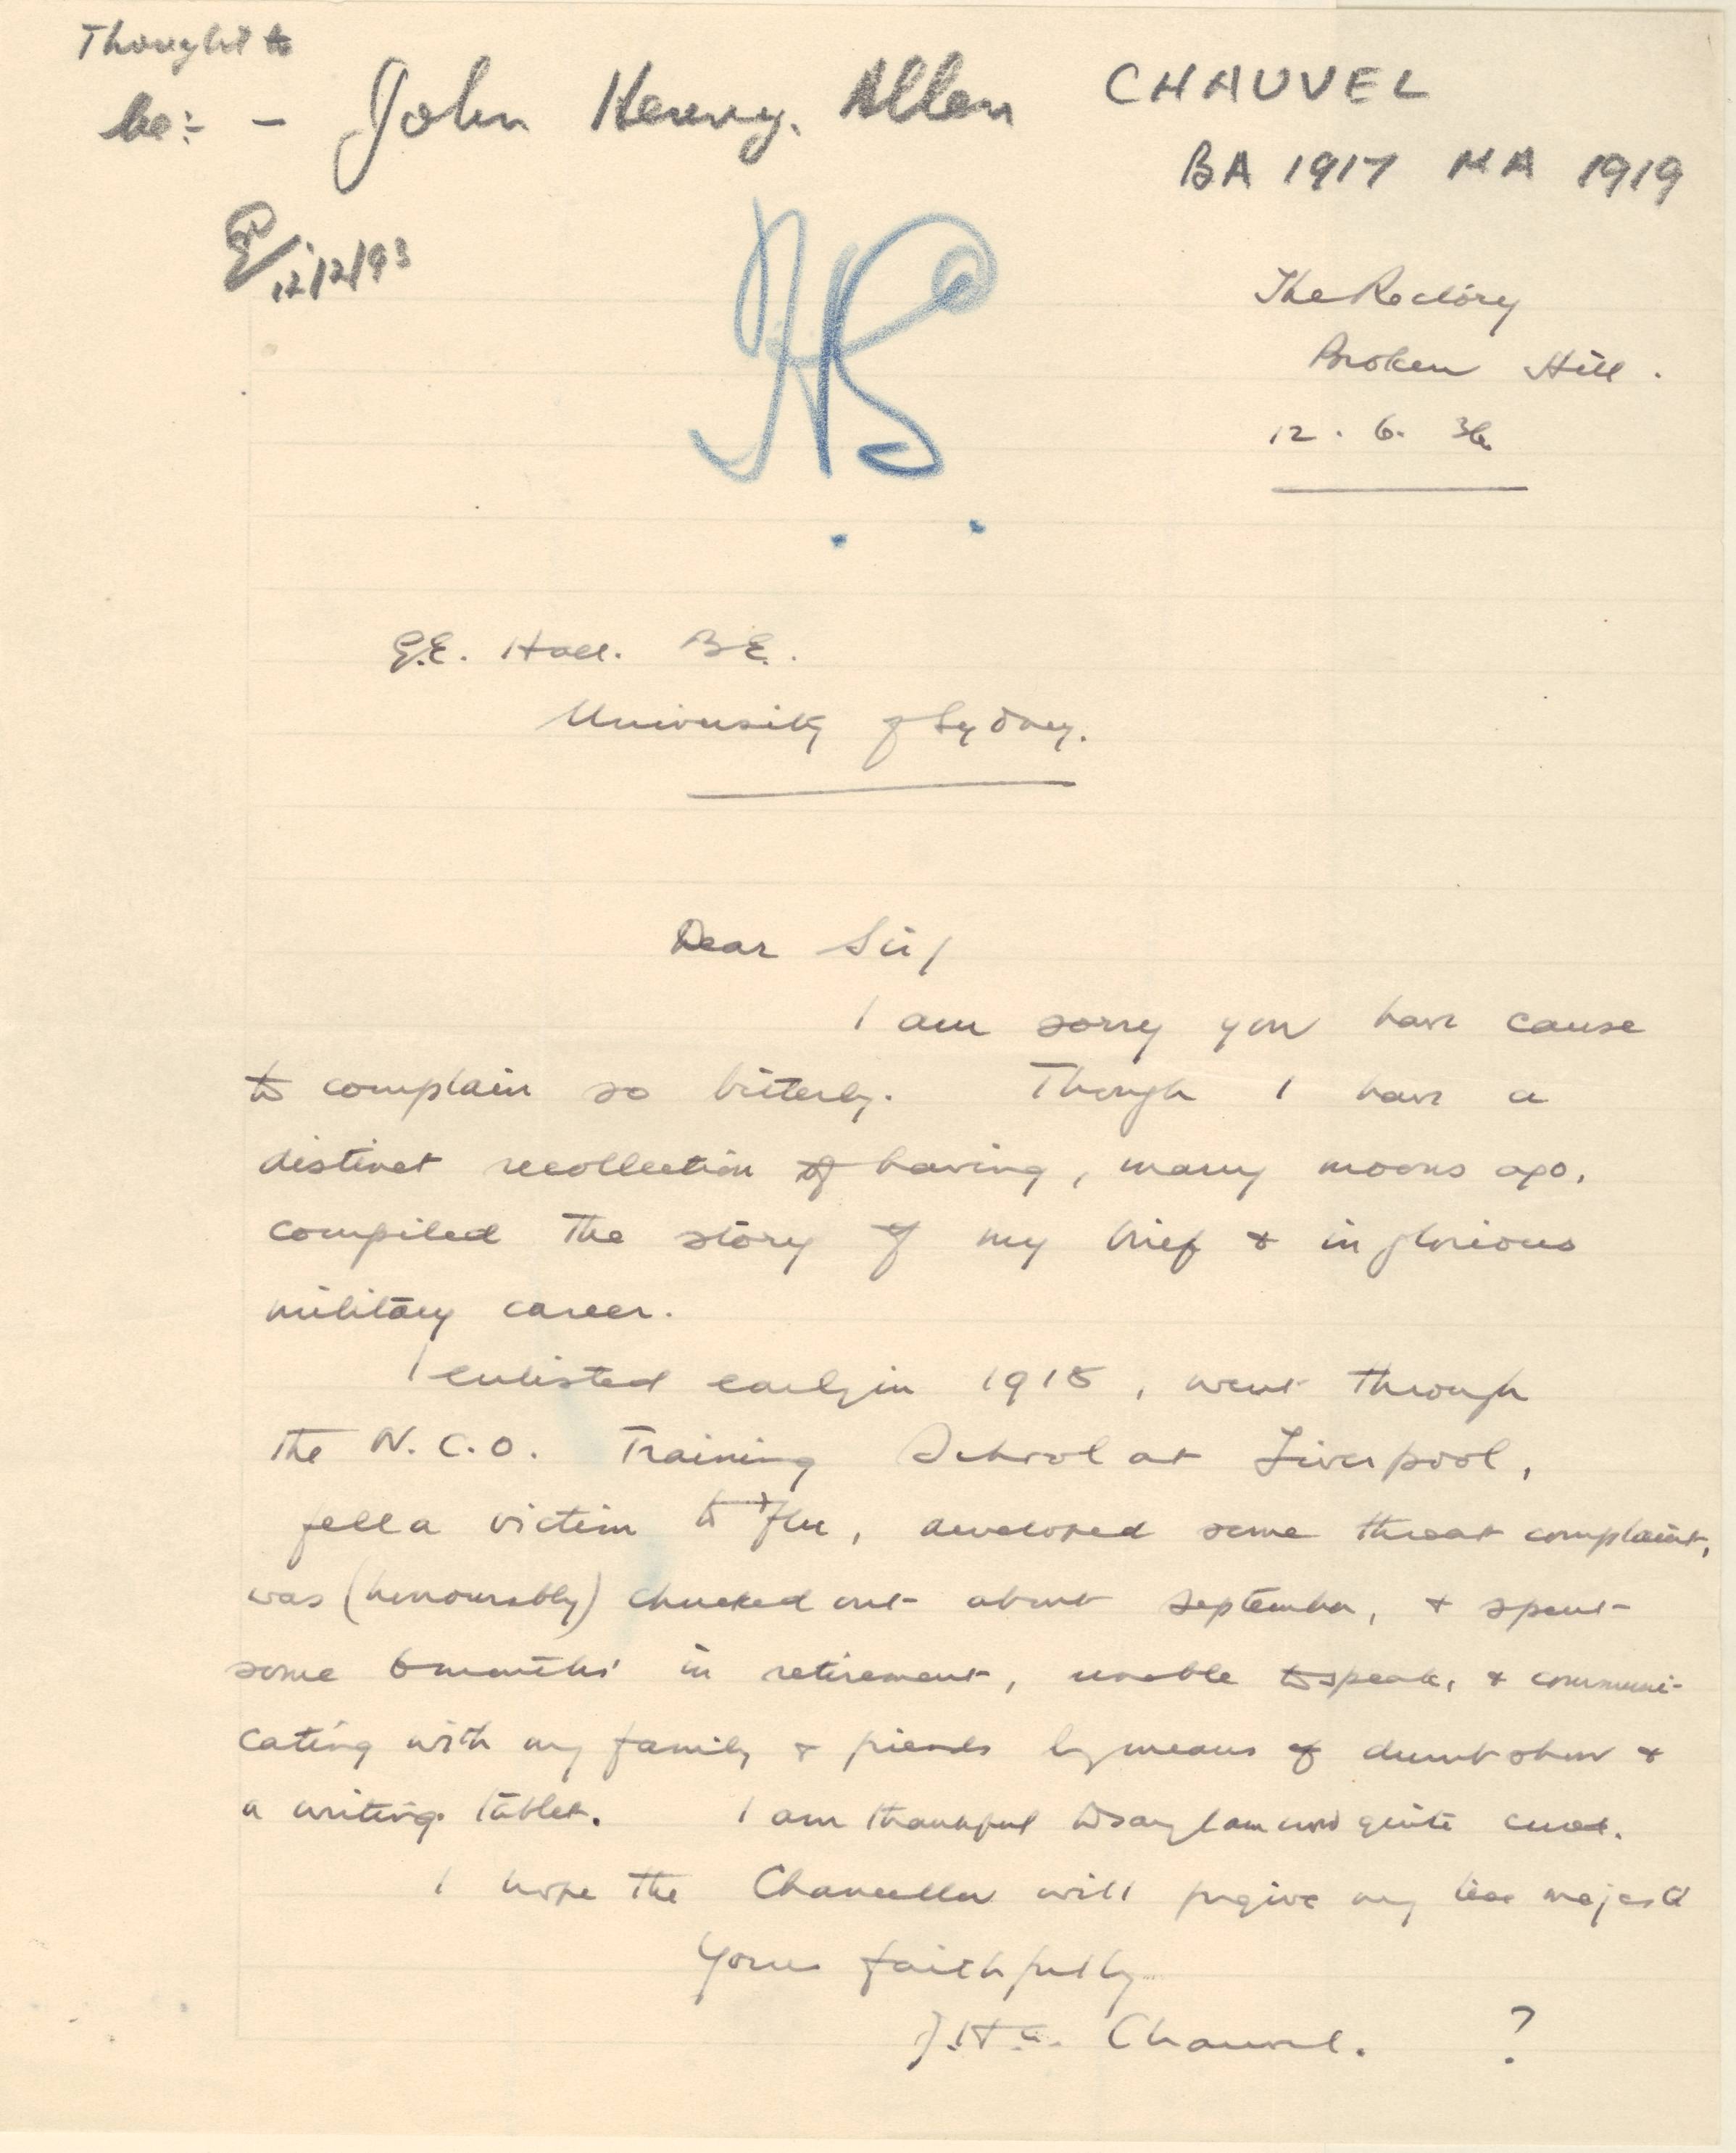 Thought to
be:- - John Henry. Allen CHAUVEL
BA 1917 MA 1919
12/2/93
The Rectory
Broken Hill.
12. 6. 36
G.E. Hall. B.E.
University of Sydney.
Dear Sir/
I am sorry you have cause
to complain so bitterly. Though I have a
distinct recollection of having, many moons ago,
compiled the story of my brief & inglorious
military career.
I enlisted early in 1918, went through
the N.C.O. Training School at Liverpool,
fell a victim to 'flu, developed some throat complaint,
was (honourably) chucked out about September, & spent
some 6 months' in retirement, unable to speak, & communi-
cating with my family & friends by means of dumb show &
a writing tablet. I am thankful to say I am now quite cured.
I hope the Chancellor will forgive my lese majesté
Yours faithfully
J.H.A. Chauvel. ?